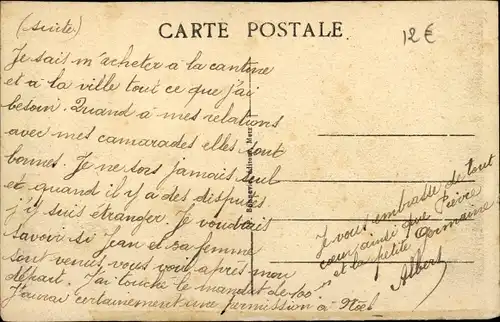 (suite)
CARTE POSTALE
12€
Je sais m'acheter à la cantine
et à la ville tout ce que j'ai
besoin. Quand à mes relations
avec mes camarades elles sont
bonnes. Je ne sors jamais seul
et quand il y a des disputes
j'y suis étranger. Je voudrais
savoir si Jean et sa femme
sont venus vous voir après mon
départ. J'ai touché le mandat de 100 frs
J'aurai certainement une permission à Noël
Metz
Je vous embrasse de tout
cœur ainsi que Pierre
et la petite Germaine
Albert